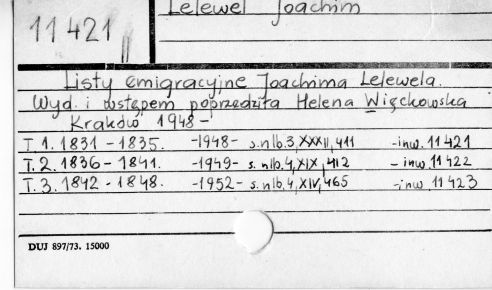 11421 II
Lelewel Joachim
Listy emigracyjne Joachima Lelewela.
Wyd. i wstępem poprzedziła Helena Więckowska
Kraków 1948 -
T. 1. 1831 - 1835. -1948- s. nlb. 3, XXXII, 411 -inw. 11421
T. 2. 1836 - 1841. -1949- s. nlb. 4, XIX, 412 - inw. 11422
T. 3. 1842 - 1848. -1952- s. nlb. 4, XIV, 465 -inw. 11423
DUJ 897/73. 15000